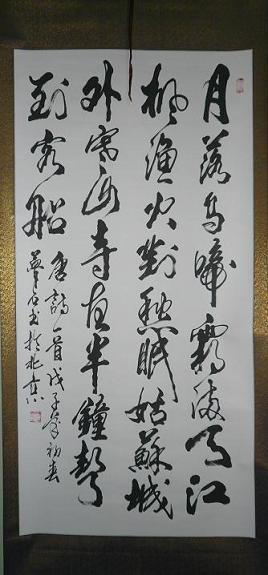 月落烏啼霜滿天江
楓漁火對愁眠姑蘇城
外寒山寺夜半鐘聲
到客船
唐詩一首戊子年初春
書於北京